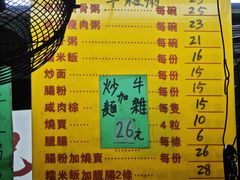 粥 每碗 25
瘦肉粥 每碗 23
粥 每碗 21
糯米飯 每份 16
炒面 每份 15
腸粉 每份 15
咸肉粽 每隻 15
燒賣 4粒 10
腸 每份 6
腸粉加燒賣 每份 26
糯米飯加腸2條 28
牛雜
加
炒麵
26元